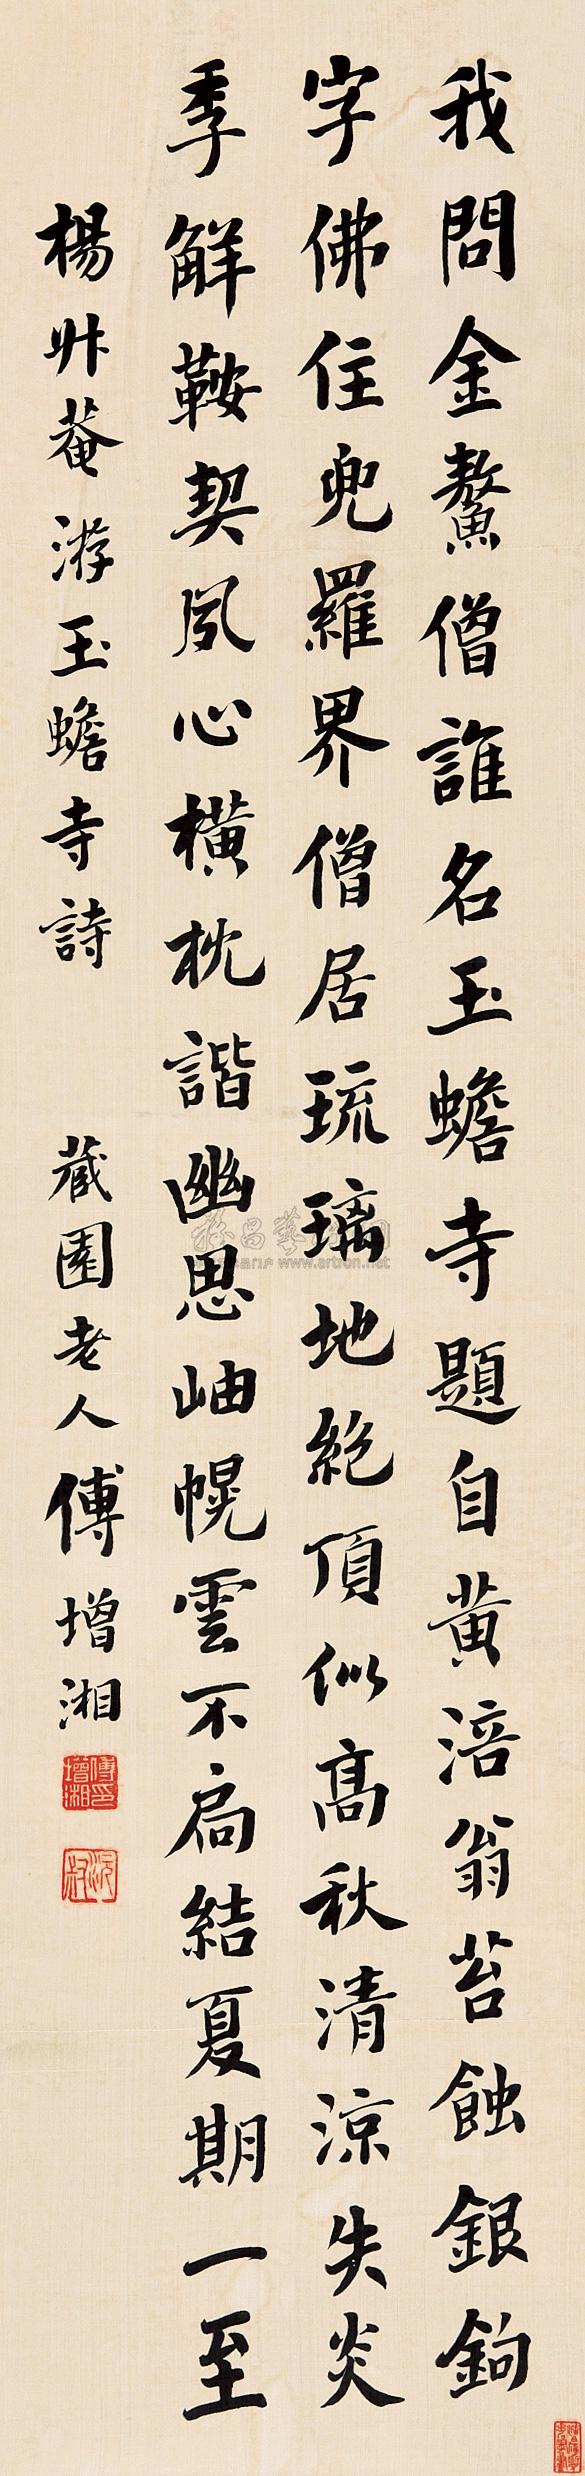 我問金鰲僧誰名玉蟾寺題自黄涪翁苔蝕銀鉤
字佛住兜羅界僧居琉璃地絶頂似高秋清涼失炎
季解鞍契夙心橫枕諧幽思岫幌雲不扃結夏期一至
楊升菴游玉蟾寺詩 藏園老人傅增湘
傅增湘印
沅叔